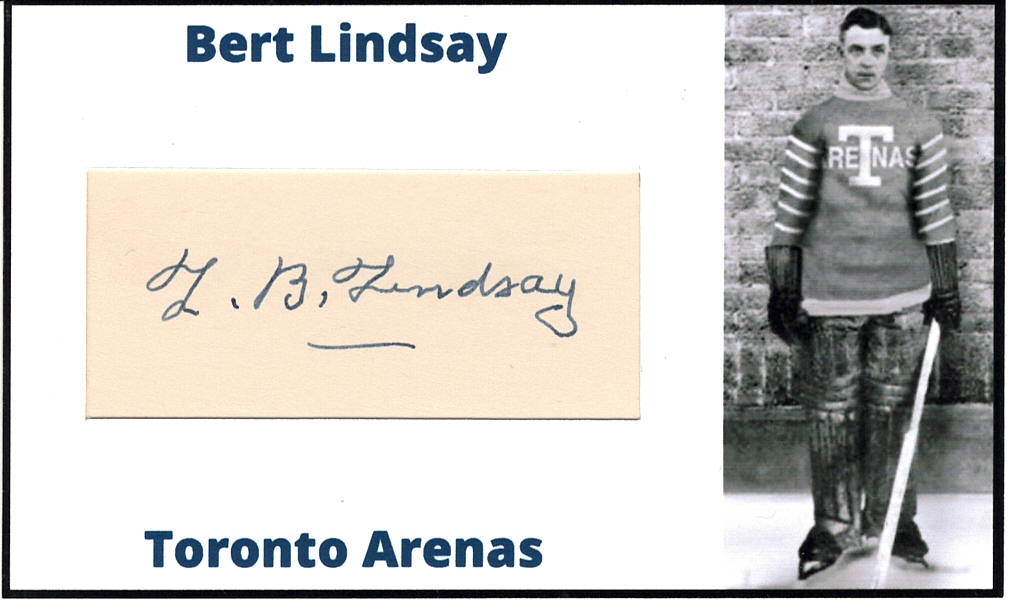 Bert Lindsay
L. B. Lindsay
Toronto Arenas
T
ARENAS